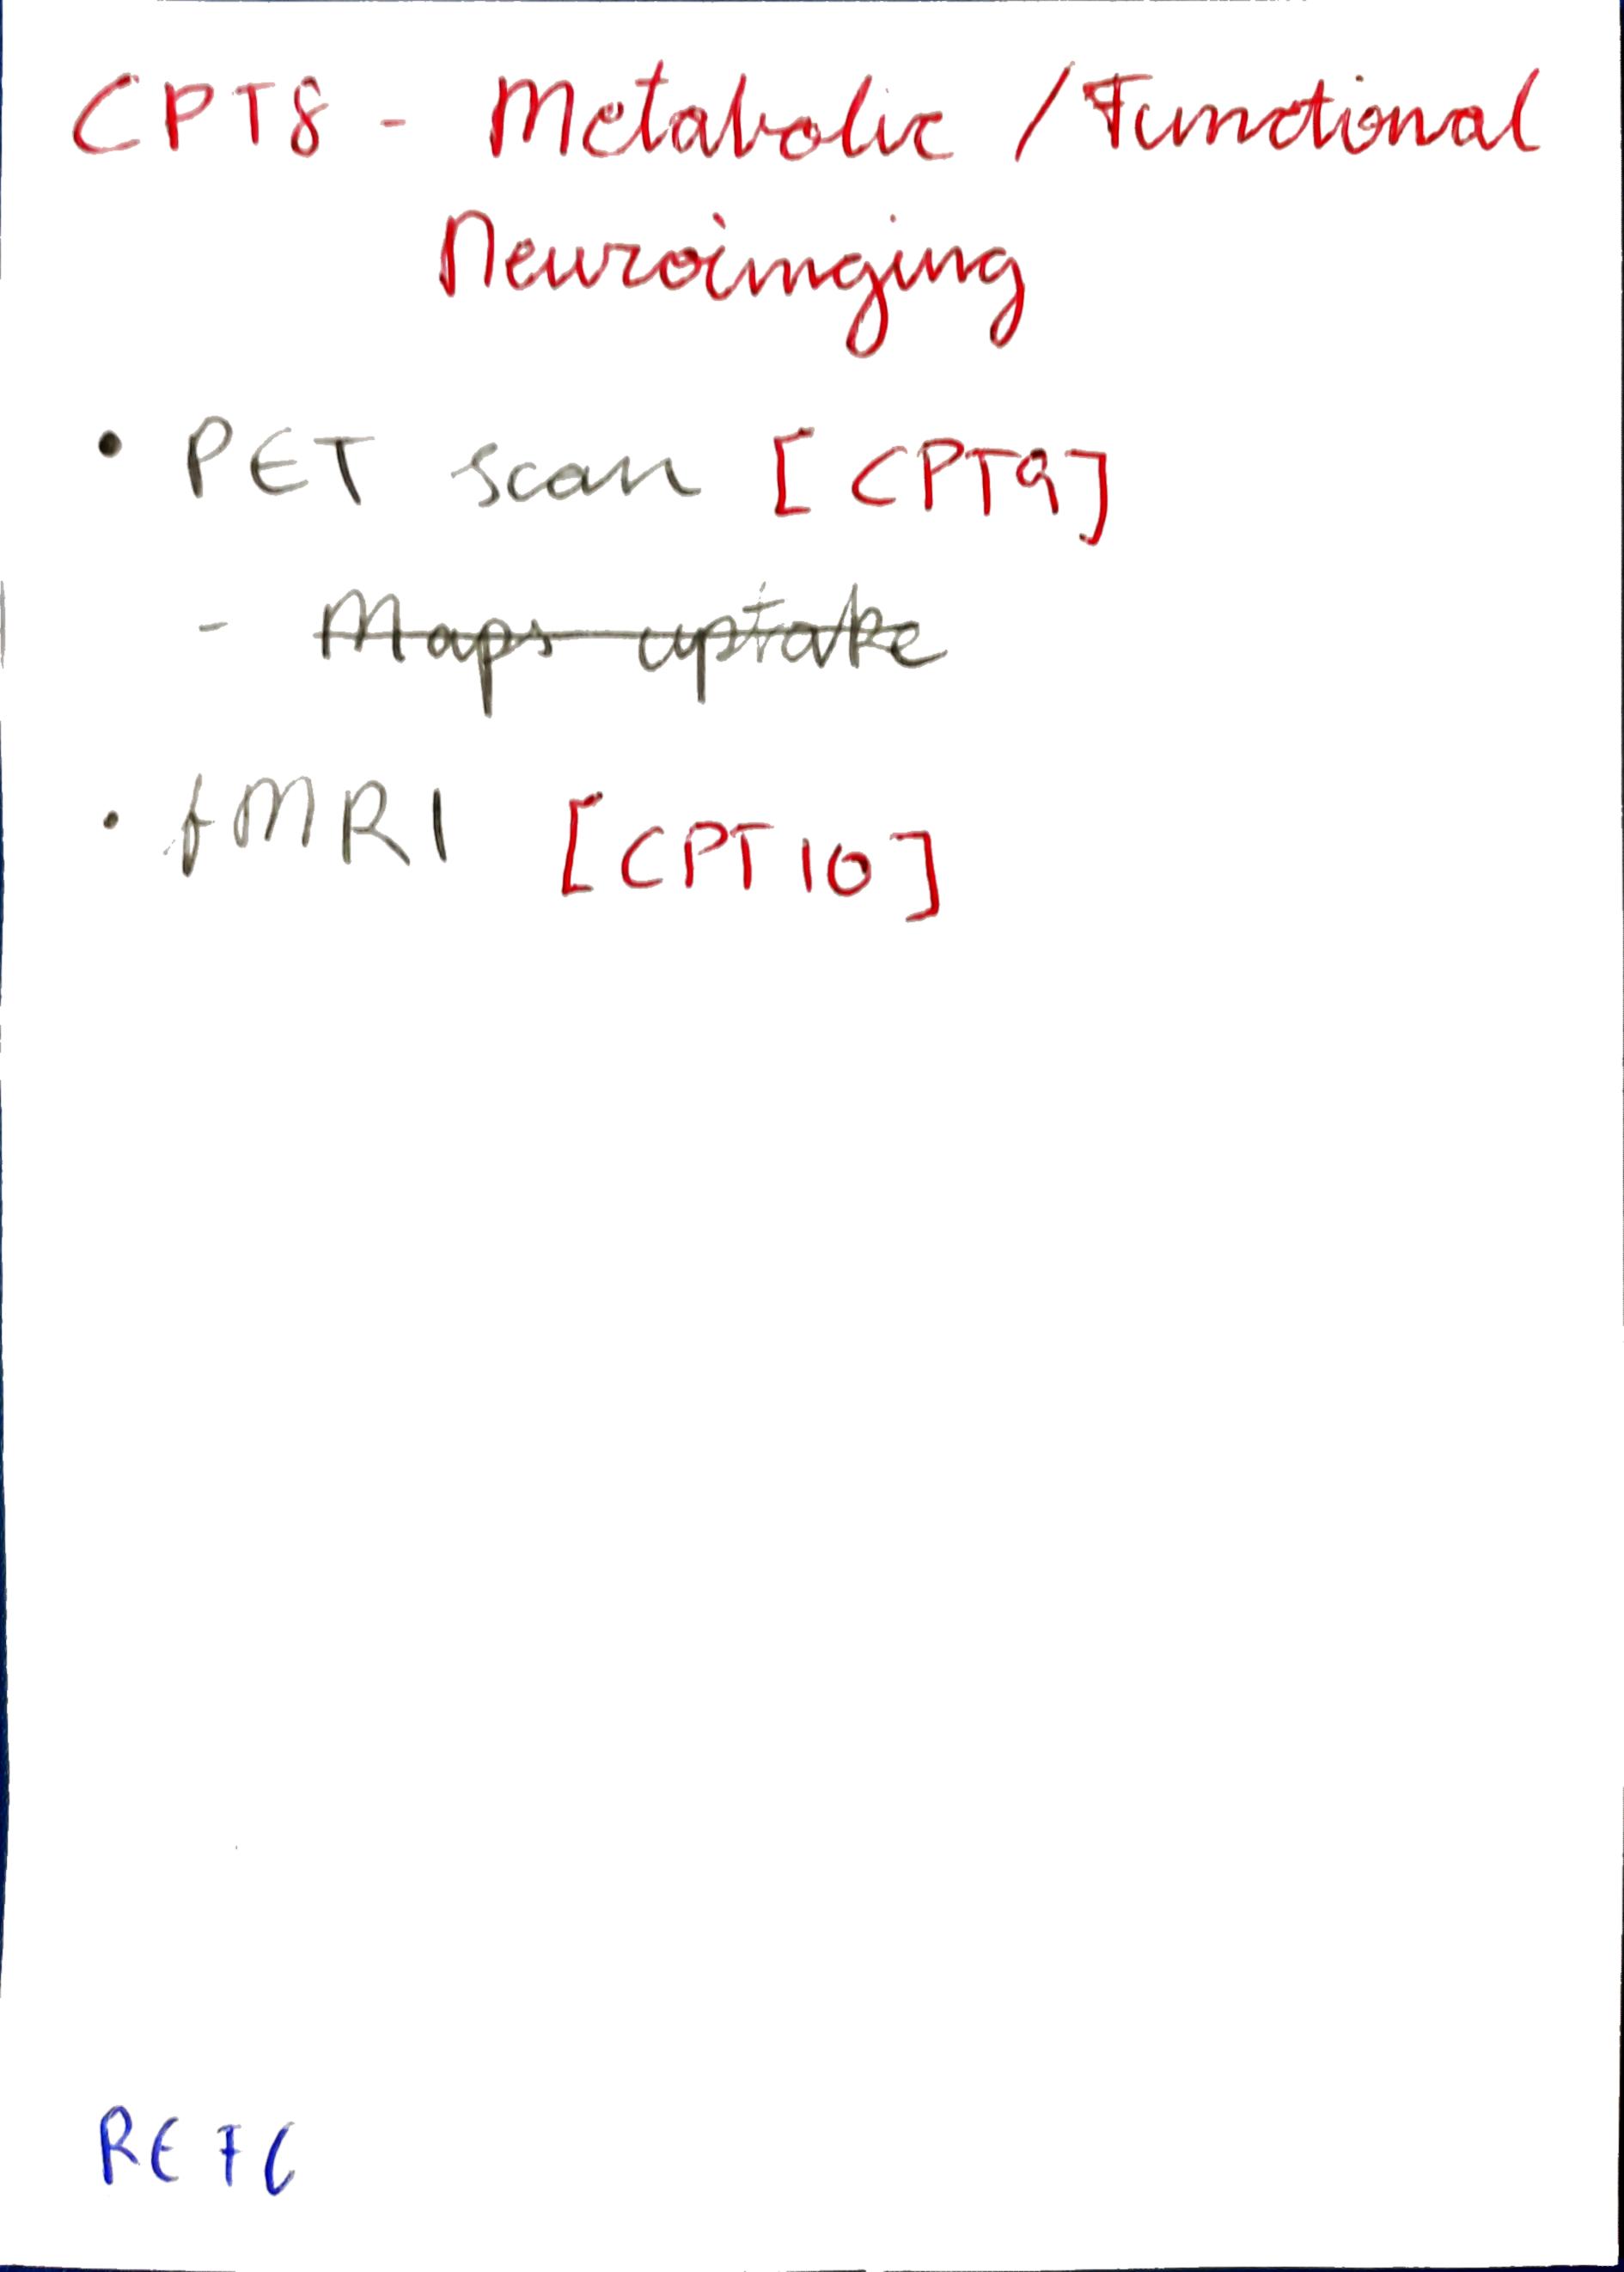 CPT8 - Metabolic / Functional
Neuroimging
• PET scan [CPT9]
- Maps uptake
• fMRI [CPT10]
REF6